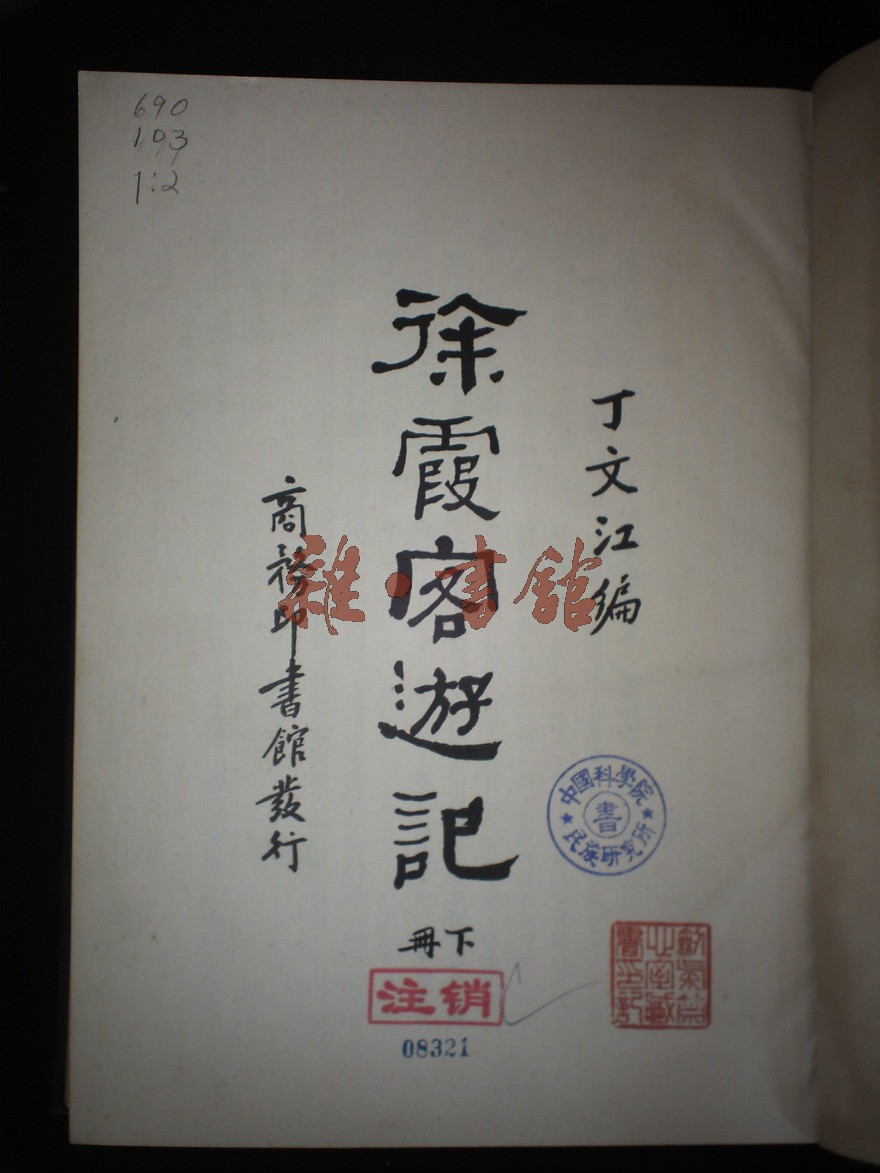 690
103
1:2
丁文江编
徐霞客遊記
下冊
商務印書館發行
雜·書館
中國科學院
書
民族研究所
注销
08321